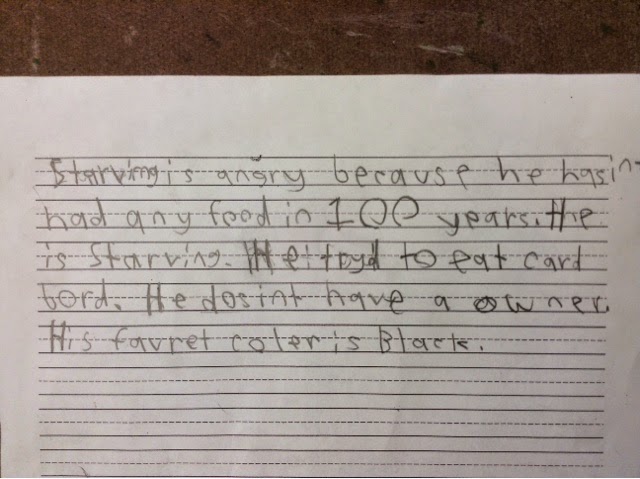 Starving is angry because he hasint
had any food in 100 years. He
is Starving. He tryd to eat card
bord. He dosint have a owner.
His favret coler is Black.